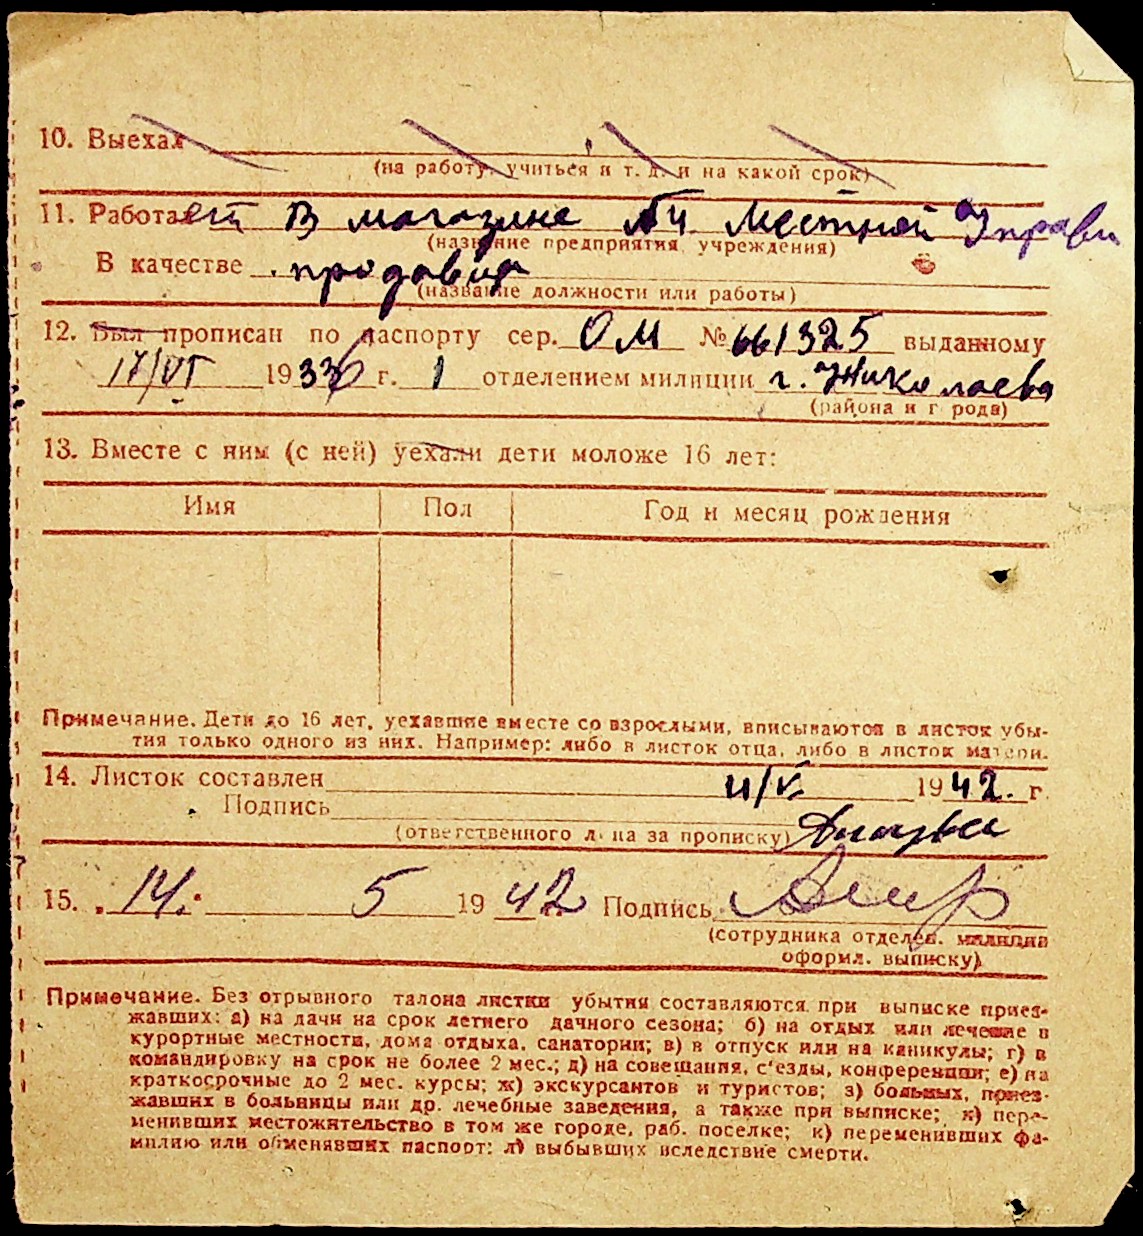 10. Выехал
(на работу, учиться и т. д. и на какой срок)
11. Работает в магазине №4 Местной Управы
(название предприятия, учреждения)
В качестве продавца
(название должности или работы)
12. Был прописан по паспорту сер. ОМ № 661325 выданному
17/VI 1936 г. 1 отделением милиции г. Николаева
(района и города)
13. Вместе с ним (с ней) уехали дети моложе 16 лет:
Имя Пол Год и месяц рождения
Примечание. Дети до 16 лет, уехавшие вместе со взрослыми, вписываются в листок убы-
тия только одного из них. Например: либо в листок отца, либо в листок матери.
14. Листок составлен 11/V 1942. г.
Подпись
(ответственного лица за прописку)
15. 14. 5 1942 Подпись
(сотрудника отделен. милиции
оформл. выписку)
Примечание. Без отрывного талона листки убытия составляются при выписке приез-
жавших: а) на дачи на срок летнего дачного сезона; б) на отдых или лечение в
курортные местности, дома отдыха, санатории; в) в отпуск или на каникулы; г) в
командировку на срок не более 2 мес.; д) на совещания, с'езды, конференции; е) на
краткосрочные до 2 мес. курсы; ж) экскурсантов и туристов; з) больных, приез-
жавших в больницы или др. лечебные заведения, а также при выписке; и) пере-
менивших местожительство в том же городе, раб. поселке; к) переменивших фа-
милию или обменявших паспорт; л) выбывших вследствие смерти.